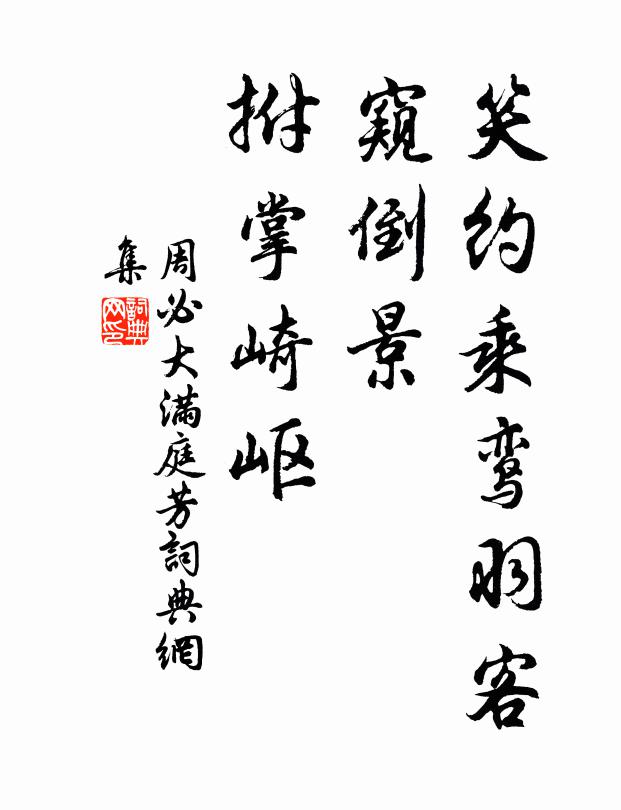 笑约乘鸾羽客
窥倒景
拊掌崎岖
周必大满庭芳詞典網
集
詞典
网印